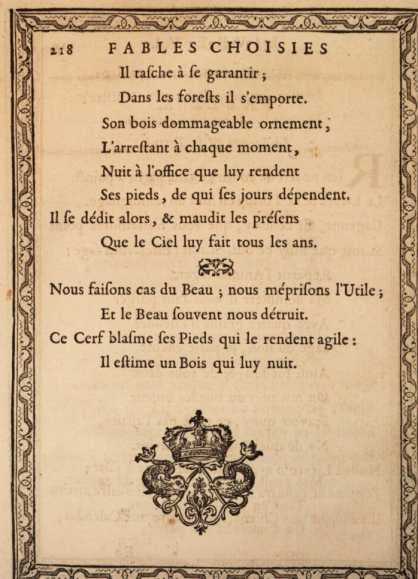 218 FABLES CHOISIES
Il taſche à ſe garantir ;
Dans les foreſts il s'emporte.
Son bois dommageable ornement,
L'arreſtant à chaque moment,
Nuit à l'office que luy rendent
Ses pieds, de qui ſes jours dépendent.
Il ſe dédit alors, & maudit les préſens
Que le Ciel luy fait tous les ans.
Nous faiſons cas du Beau ; nous mépriſons l'Utile ;
Et le Beau ſouvent nous détruit.
Ce Cerf blaſme ſes Pieds qui le rendent agile :
Il eſtime un Bois qui luy nuit.